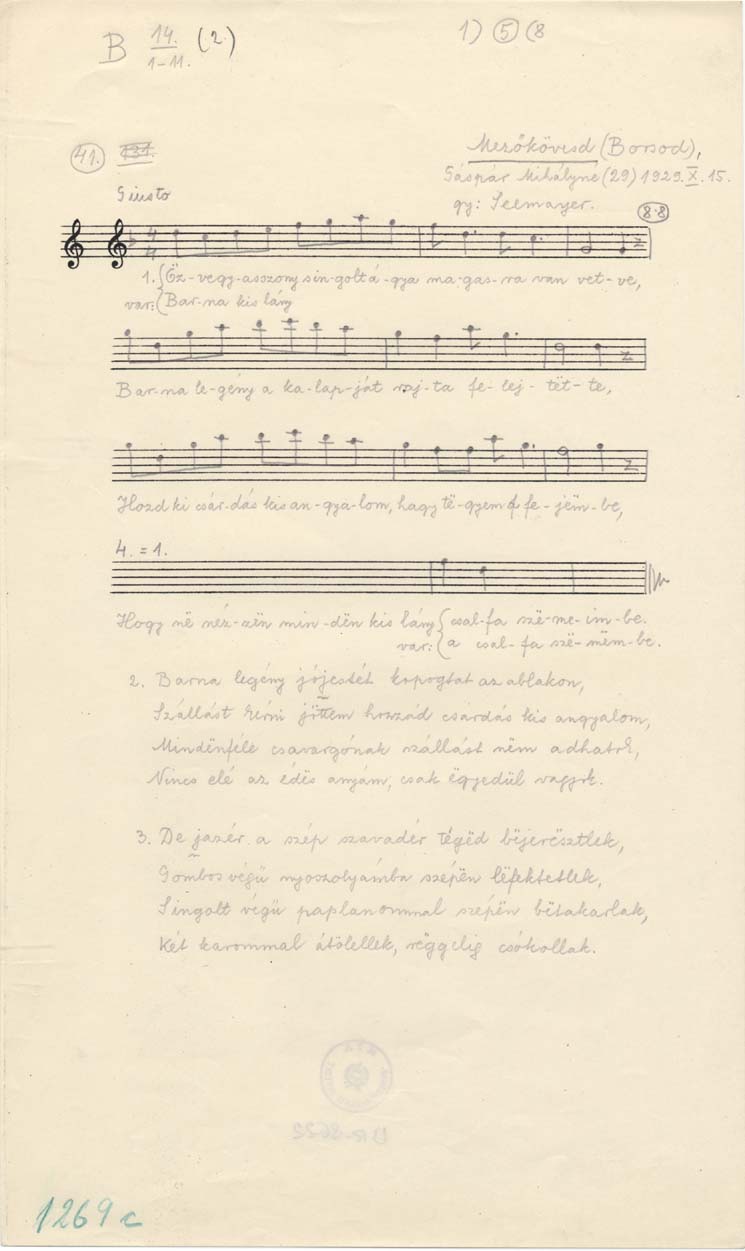 B 14. (2.) 1) 5 (8
1-11.
41. 131. Mezőkövesd (Borsod),
Gáspár Mihályné (29) 1929. X. 15.
Giusto gy: Seemayer.
8·8
4
4
1. Öz-vegy-asszony sin-golt á-gya ma-gas-ra van vet-ve,
var: Bar-na kis lány
Bar-na le-gény a ka-lap-ját raj-ta fe-lej-tët-te,
Hozd ki csár-dás kis an-gya-lom, hagy të-gyem fe-jëm-be,
4. = 1.
Hogy në néz-zën min-dën kis lány csal-fa szë-me-im-be.
var: a csal-fa szë-mëm-be.
2. Barna legény jójestét kopogtat az ablakon,
Szállást kérni jöttem hozzád csárdás kis angyalom,
Mindënféle csavargónak szállást nëm adhatok,
Nincs elé az édës anyám, csak ëgyedül vagyok.
3. De jazér a szép szavadér tégëd bëjerësztlek,
Gombos végű nyoszolyámba szépën lëfektetlek,
Singolt végű paplanommal szépën bëtakarlak,
Két karommal átölellek, rëggelig csókollak.
1269 c